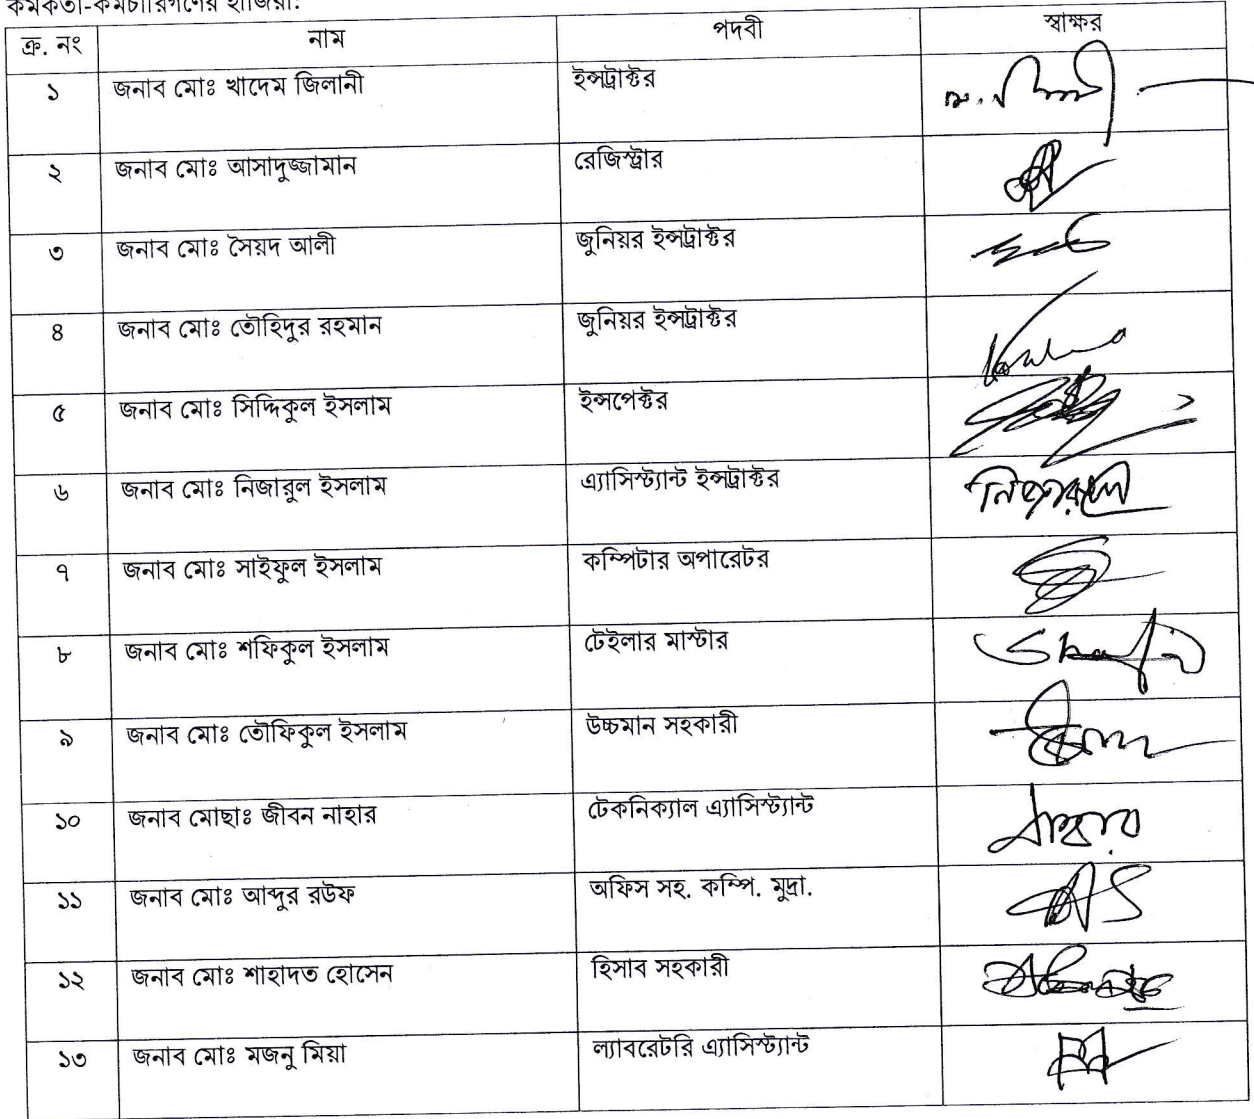 কর্মকর্তা-কর্মচারিগণের হাজিরা:
ক্র. নং নাম পদবী স্বাক্ষর
১ জনাব মোঃ খাদেম জিলানী ইন্সট্রাক্টর
২ জনাব মোঃ আসাদুজ্জামান রেজিস্ট্রার
৩ জনাব মোঃ সৈয়দ আলী জুনিয়র ইন্সট্রাক্টর
৪ জনাব মোঃ তৌহিদুর রহমান জুনিয়র ইন্সট্রাক্টর
৫ জনাব মোঃ সিদ্দিকুল ইসলাম ইন্সপেক্টর
৬ জনাব মোঃ নিজারুল ইসলাম এ্যাসিস্ট্যান্ট ইন্সট্রাক্টর
৭ জনাব মোঃ সাইফুল ইসলাম কম্পিটার অপারেটর
৮ জনাব মোঃ শফিকুল ইসলাম টেইলার মাস্টার
৯ জনাব মোঃ তৌফিকুল ইসলাম উচ্চমান সহকারী
১০ জনাব মোছাঃ জীবন নাহার টেকনিক্যাল এ্যাসিস্ট্যান্ট
১১ জনাব মোঃ আব্দুর রউফ অফিস সহ. কম্পি. মুদ্রা.
১২ জনাব মোঃ শাহাদত হোসেন হিসাব সহকারী
১৩ জনাব মোঃ মজনু মিয়া ল্যাবরেটরি এ্যাসিস্ট্যান্ট